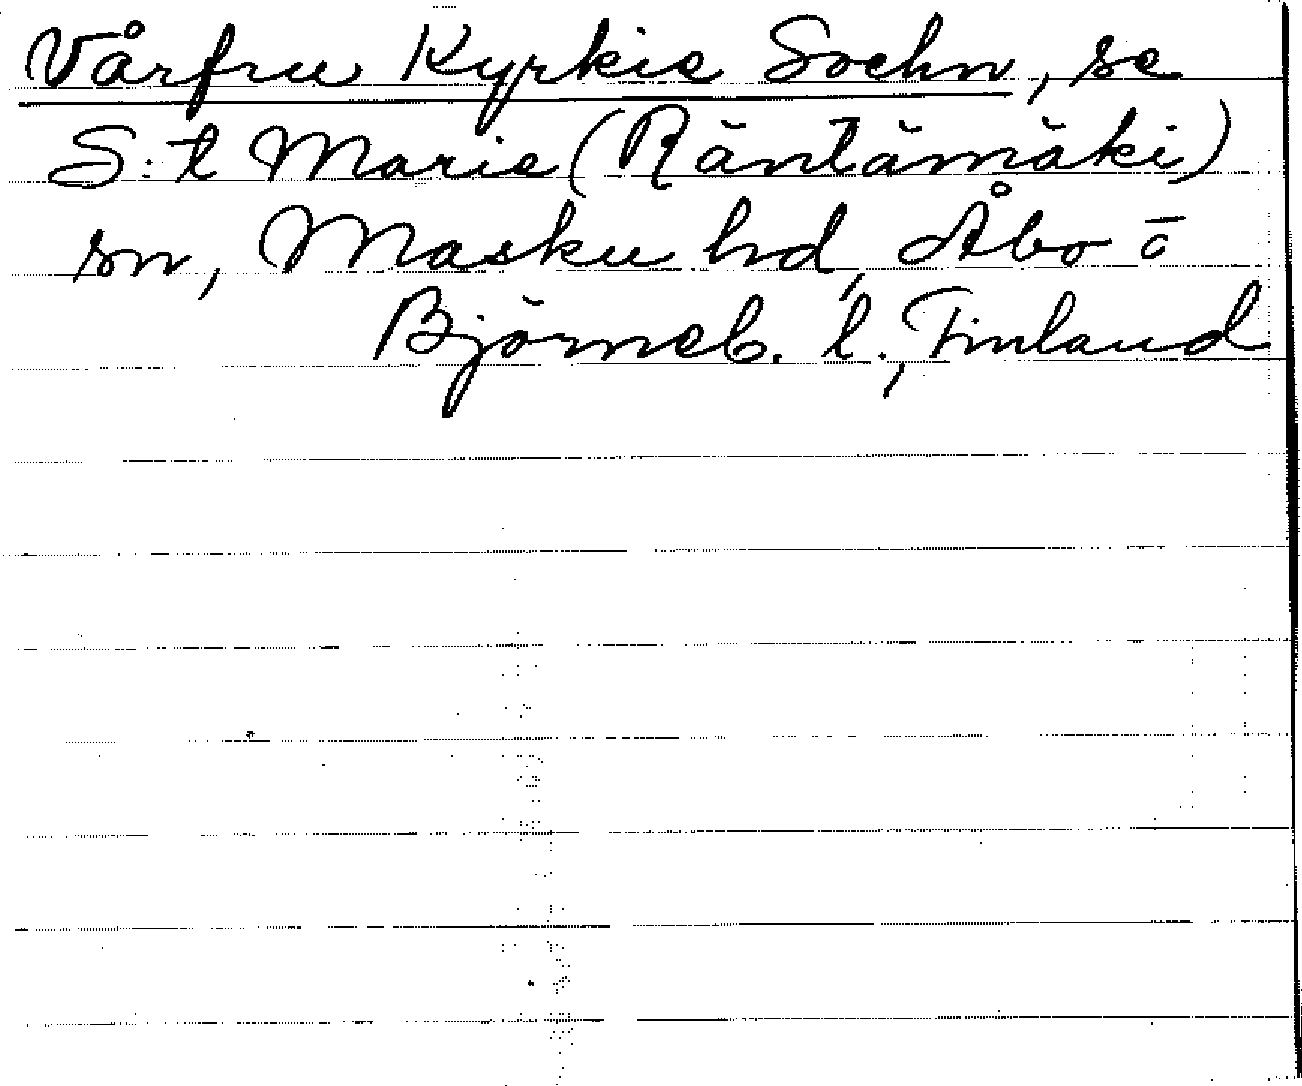 Vårfru Kyrkie Sochn, se
S:t Marie (Räntämäki)
sn, Masku hd, Åbo o
Björneb. l., Finland